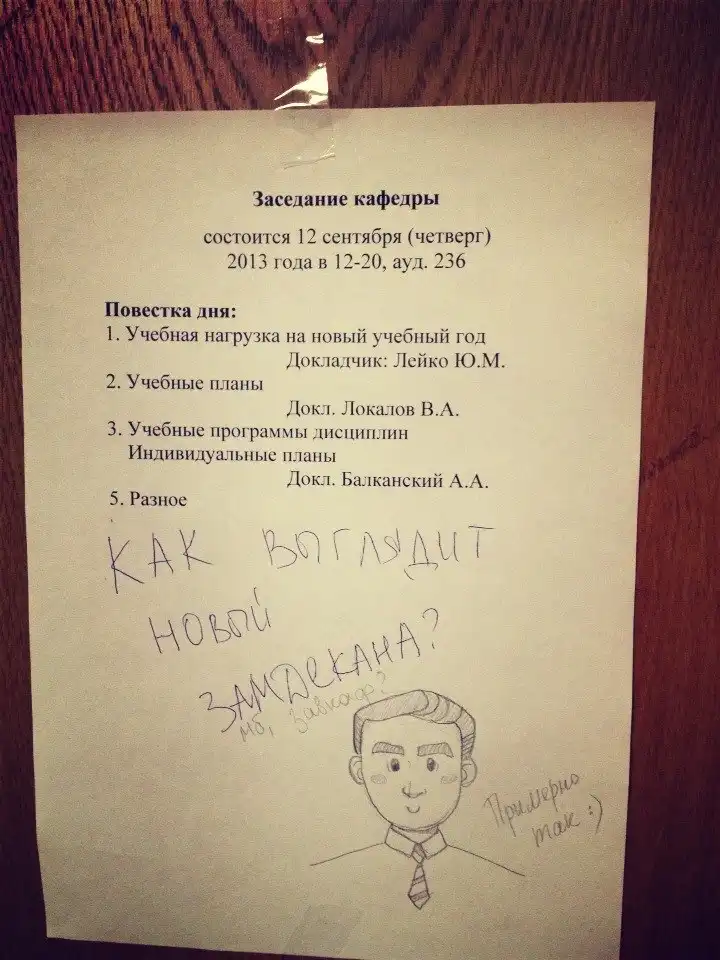 Заседание кафедры
состоится 12 сентября (четверг)
2013 года в 12-20, ауд. 236
Повестка дня:
1. Учебная нагрузка на новый учебный год
Докладчик: Лейко Ю.М.
2. Учебные планы
Докл. Локалов В.А.
3. Учебные программы дисциплин
Индивидуальные планы
Докл. Балканский А.А.
5. Разное
КАК ВЫГЛЯДИТ
НОВЫЙ
ЗАМДЕКАНА?
мб, Завкаф?
Примерно
так :)